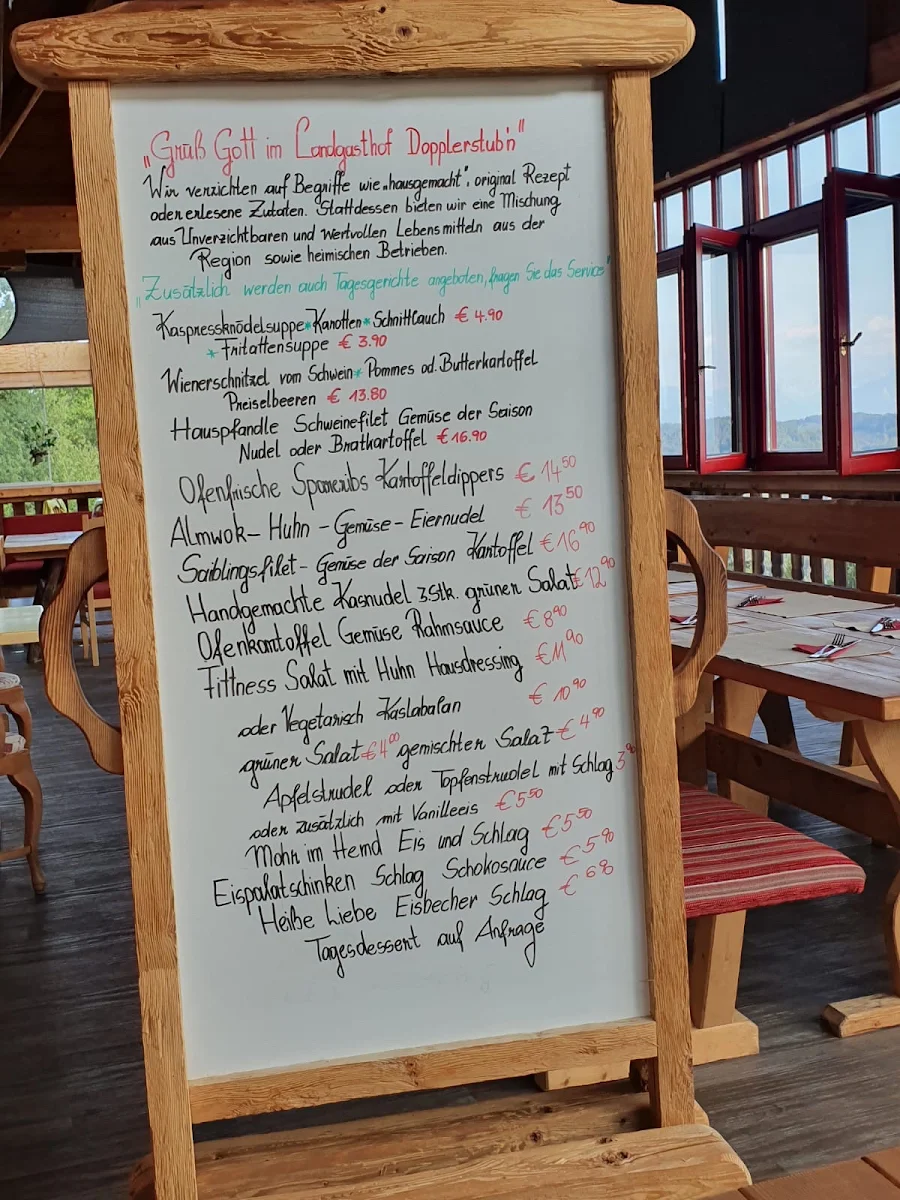 „Grüß Gott im Landgasthof Dopplerstub'n"
Wir verzichten auf Begriffe wie „hausgemacht", original Rezept
oder erlesene Zutaten. Stattdessen bieten wir eine Mischung
aus Unverzichtbaren und wertvollen Lebensmitteln aus der
Region sowie heimischen Betrieben.
„Zusätzlich werden auch Tagesgerichte angeboten, fragen Sie das Service"
Kaspressknödelsuppe * Karotten * Schnittlauch € 4.90
* Fritattensuppe € 3.90
Wienerschnitzel vom Schwein * Pommes od. Butterkartoffel
Preiselbeeren € 13.80
Hauspfandle Schweinefilet Gemüse der Saison
Nudel oder Bratkartoffel € 16.90
Ofenfrische Spareribs Kartoffeldippers € 14.50
Almwok - Huhn - Gemüse - Eiernudel € 13.50
Saiblingsfilet - Gemüse der Saison Kartoffel € 16.90
Handgemachte Kasnudel 3 Stk. grüner Salat € 12.90
Ofenkartoffel Gemüse Rahmsauce € 8.90
Fittness Salat mit Huhn Hausdressing € 11.90
oder Vegetarisch Kaslabalan € 10.90
grüner Salat € 4.00 gemischter Salat € 4.90
Apfelstrudel oder Topfenstrudel mit Schlag 3.90
oder zusätzlich mit Vanilleeis € 5.50
Mohr im Hemd Eis und Schlag € 5.50
Eispalatschinken Schlag Schokosauce € 5.90
Heiße Liebe Eisbecher Schlag € 6.90
Tagesdessert auf Anfrage